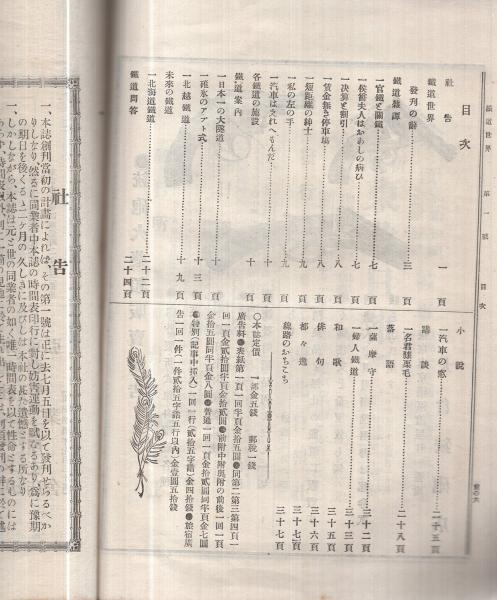 鐵道世界　第一號　目次
目次
社告……一頁
鐵道世界
發刊の辭……三頁
鐵道雜譚
一官鐵と關鐵……七頁
一侯爵夫人はおあしの病ひ……七頁
一決算と割引……八頁
一賃金無き停車場……八頁
一短距離の紳士……九頁
一私の左の手……九頁
一汽車はそれへもんだ……十頁
各鐵道の施設……十頁
鐵道案內
一日本一の大隧道……十頁
一碓氷のアプト式……十三頁
一北越鐵道……十九頁
未來の鐵道
一北海道鐵道……二十二頁
鐵道問答……二十四頁
小說
一汽車の窓……二十五頁
講談
一名君膝栗毛……二十八頁
落語
一薩摩守……三十二頁
一婦人鐵道……三十三頁
和歌……三十四頁
俳句……三十六頁
都々逸……三十七頁
線路のおちこち……三十七頁
〇本誌定價　一部金五錢　郵稅一錢
廣告料●表紙第一頁一回半頁金拾五圓●同第二第三第四頁一
回一頁金貳拾圓半頁金拾圓●前附中附奧附の前後一回一頁
金拾五圓同半頁金八圓●普通一回一頁金拾貳圓同半頁金七圓
●特別(記事中挿入)一回一行(貳拾五字詰)金四拾錢●旅宿廣
告一回一件(一件貳拾五字詰五行以內)金壹圓五拾錢
社告
一、本誌創刊當初の計畫によれば、その第一號は正に去七月五日を以て發刊せらるべか
りしなり、然るに同業者中本誌の時間表印行に對し妨害運動を試むるあり、爲に豫期
の期日を後くること二ヶ月の久しきに及びしは本社の甚だ遺憾とする所なり
一、しかしながら、本誌は元と世の同業者の如く唯一時間表を以て性命とするものには